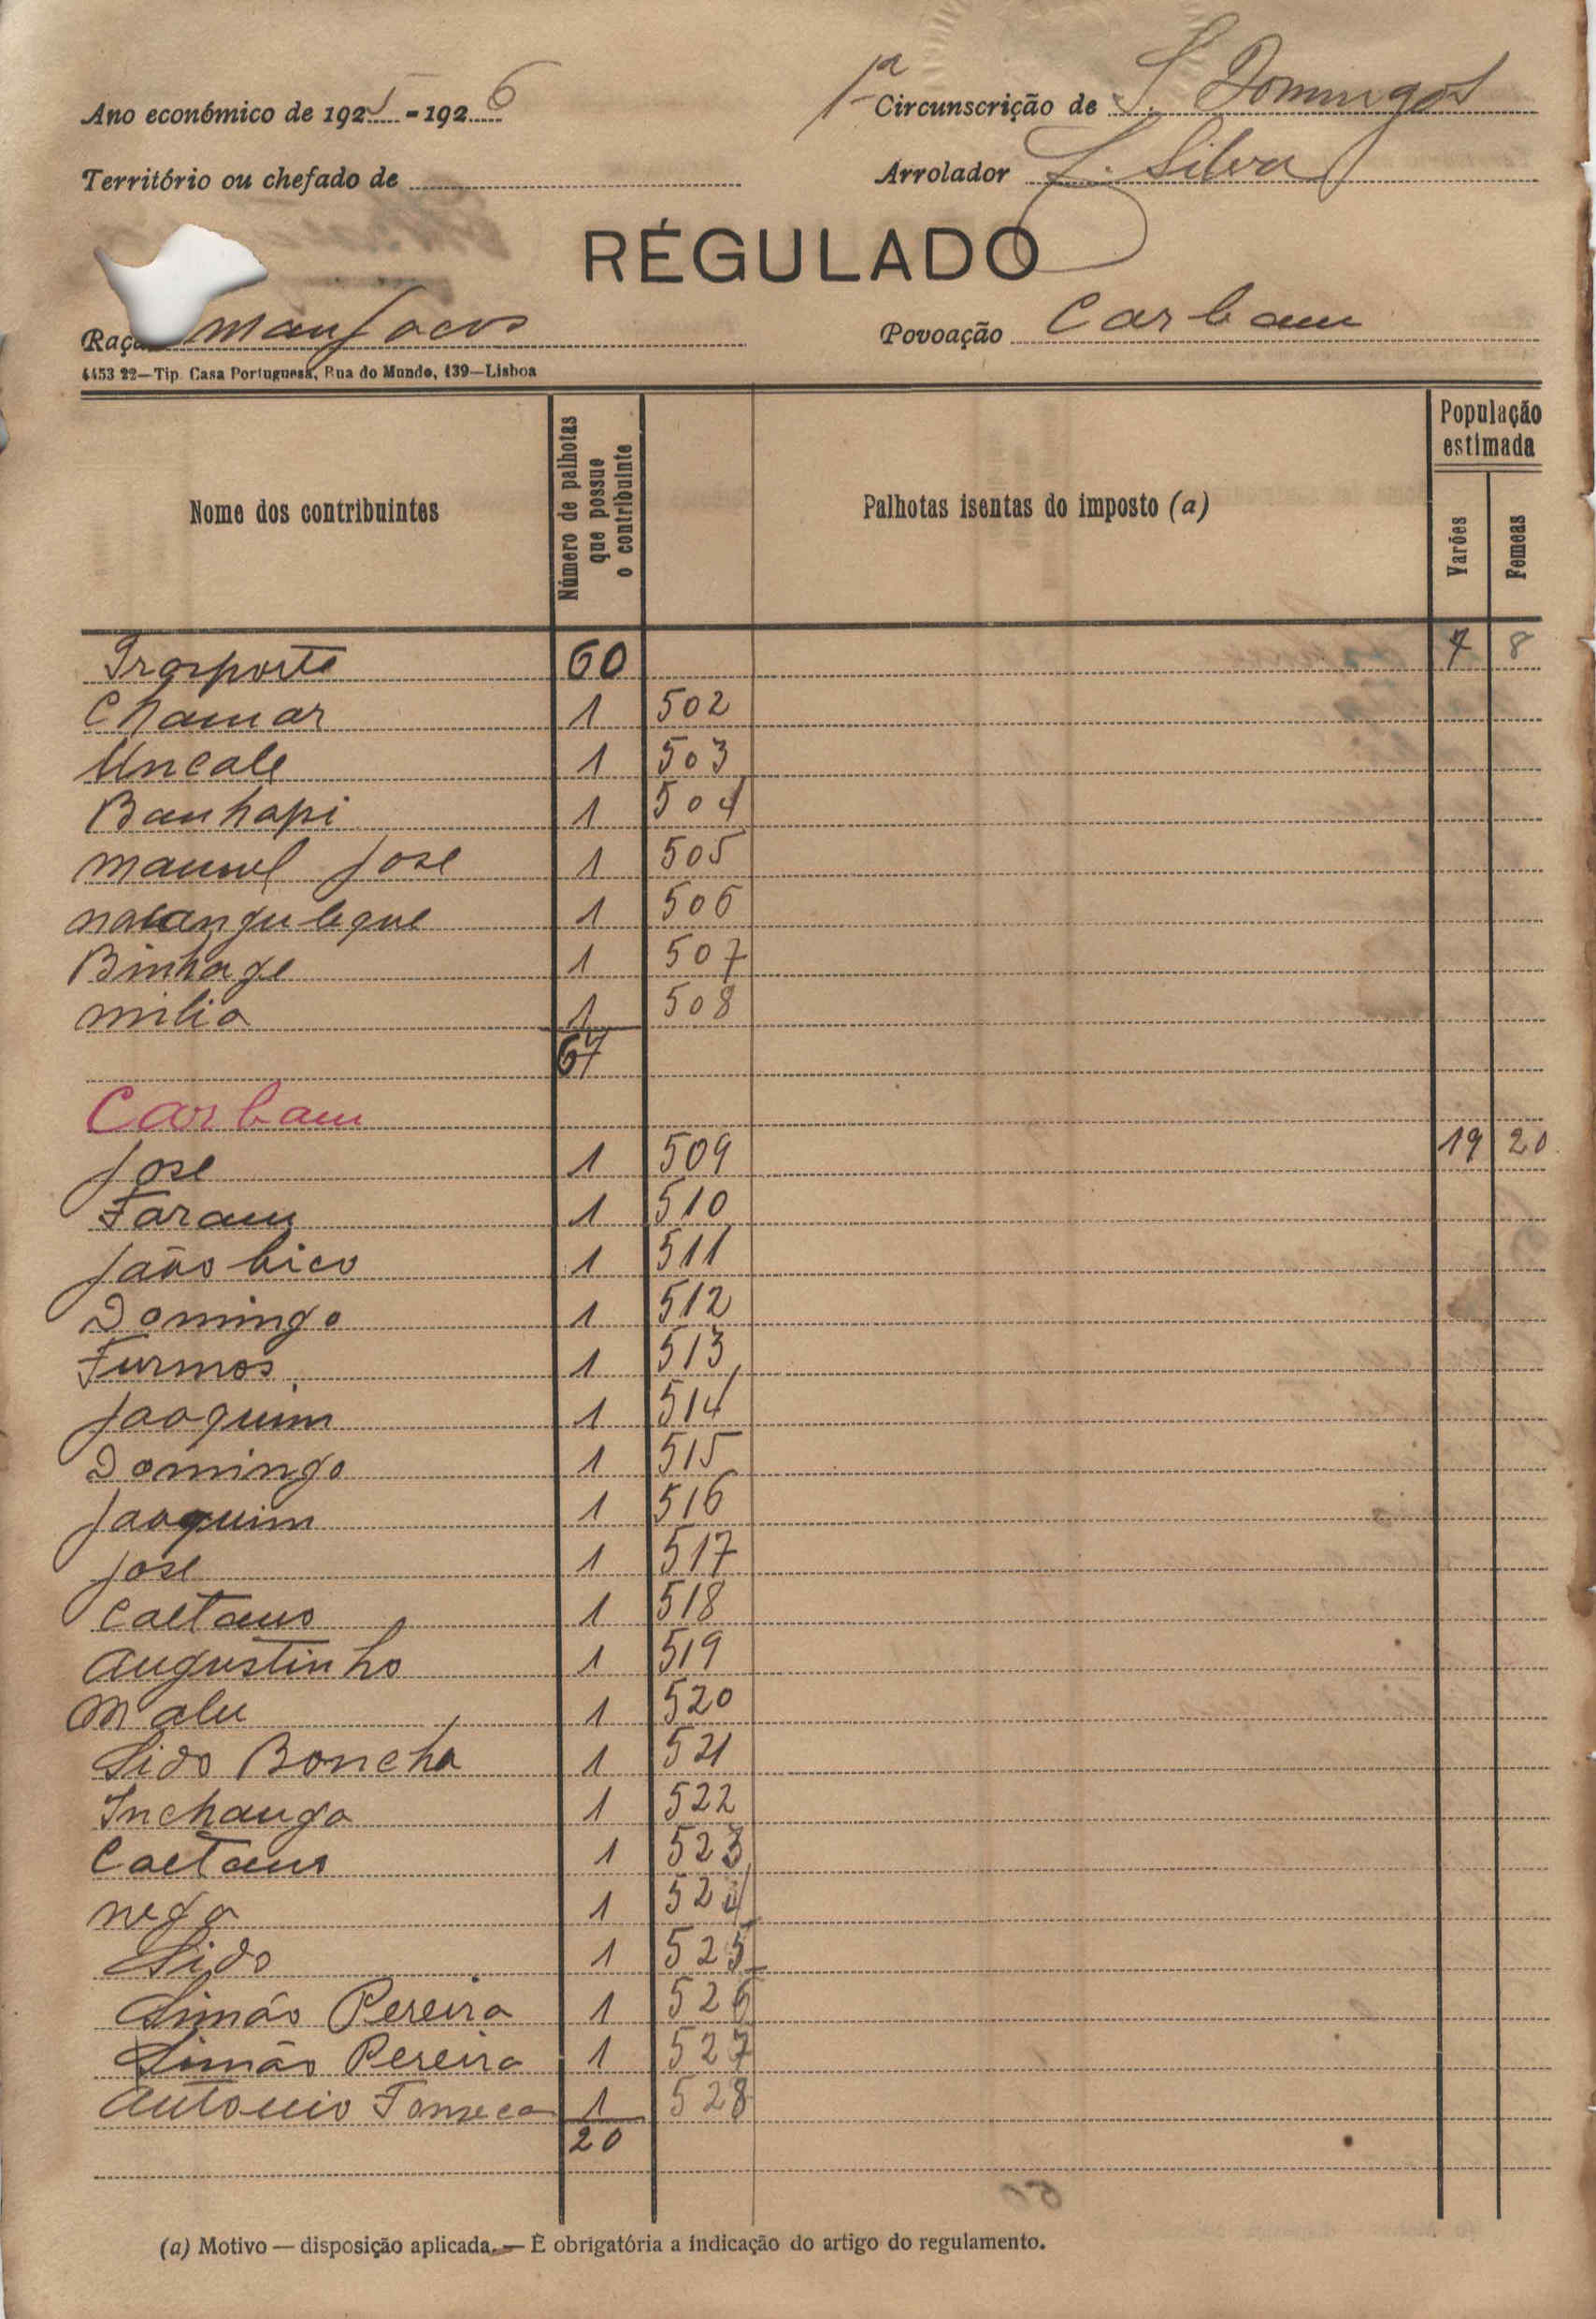 Ano económico de 1925-1926
1ª Circunscrição de S. Domingos
Território ou chefado de
Arrolador S. Silva
RÉGULADO
Raça Manjacos
Povoação Carbam
4453 22—Tip. Casa Portuguesa, Rua do Mundo, 139—Lisboa
Nome dos contribuintes
Número de palhotas que possue o contribuinte
Palhotas isentas do imposto (a)
População estimada
Varões
Femeas
Trasporte 60 7 8
Chamar 1 502
Uncale 1 503
Banhapi 1 504
Manuel Jose 1 505
1 506
Binhage 1 507
Milia 1 508
67
Carbam
Jose 1 509 19 20
Faram 1 510
João bico 1 511
Domingo 1 512
Furmos 1 513
Joaquim 1 514
Domingo 1 515
Joaquim 1 516
Jose 1 517
Caetano 1 518
Augustinho 1 519
Malu 1 520
Sido Boncha 1 521
Inchanga 1 522
Caetano 1 523
Nega 1 524
Sido 1 525
Simão Pereira 1 526
Simão Pereira 1 527
Antonio Fonseca 1 528
20
(a) Motivo — disposição aplicada. — É obrigatória a indicação do artigo do regulamento.